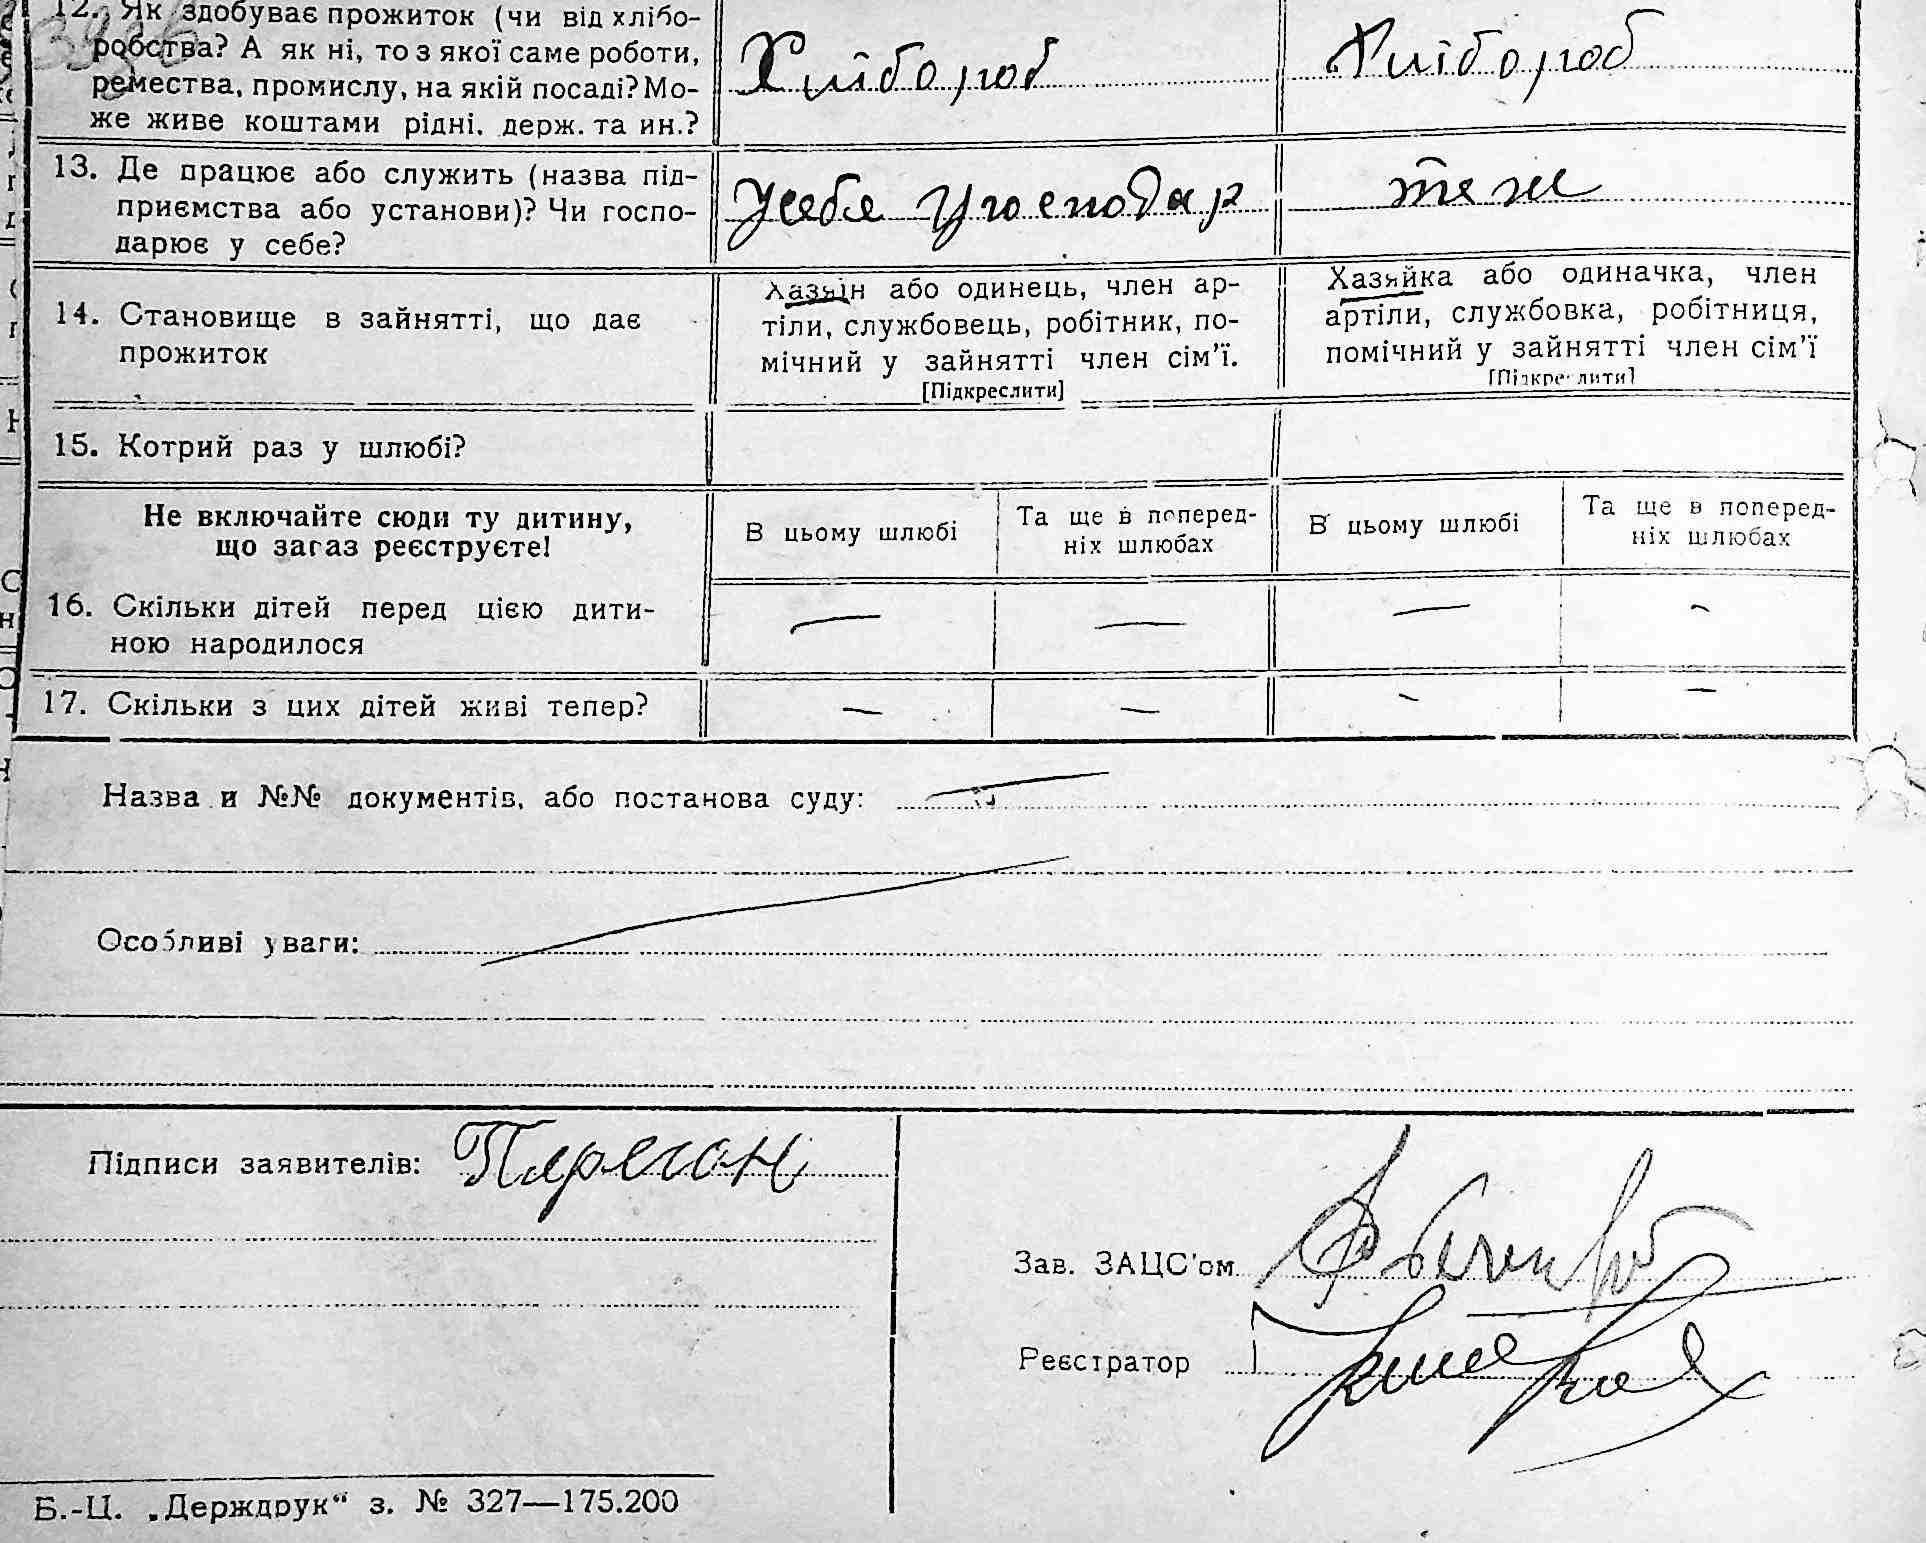 12. Як здобуває прожиток (чи від хлібо-
робства? А як ні, то з якої саме роботи,
ремества, промислу, на якій посаді? Мо-
же живе коштами рідні, держ. та ин.?
Хлібороб
Хлібороб
13. Де працює або служить (назва під-
приємства або установи)? Чи госпо-
дарює у себе?
У себе
теж
14. Становище в зайнятті, що дає
прожиток
Хазяїн або одинець, член ар-
тіли, службовець, робітник, по-
мічний у зайнятті член сім'ї.
[Підкреслити]
Хазяйка або одиначка, член
артіли, службовка, робітниця,
помічний у зайнятті член сім'ї
[Підкреслити]
15. Котрий раз у шлюбі?
Не включайте сюди ту дитину,
що загаз реєструєте!
В цьому шлюбі
Та ще в поперед-
ніх шлюбах
В цьому шлюбі
Та ще в поперед-
ніх шлюбах
16. Скільки дітей перед цією дити-
ною народилося
— — — -
17. Скільки з цих дітей живі тепер?
— — - —
Назва и №№ документів, або постанова суду: —
Особливі уваги:
Підписи заявителів:
Зав. ЗАЦС'ом
Реєстратор
Б.-Ц. „Держдрук“ з. № 327—175.200